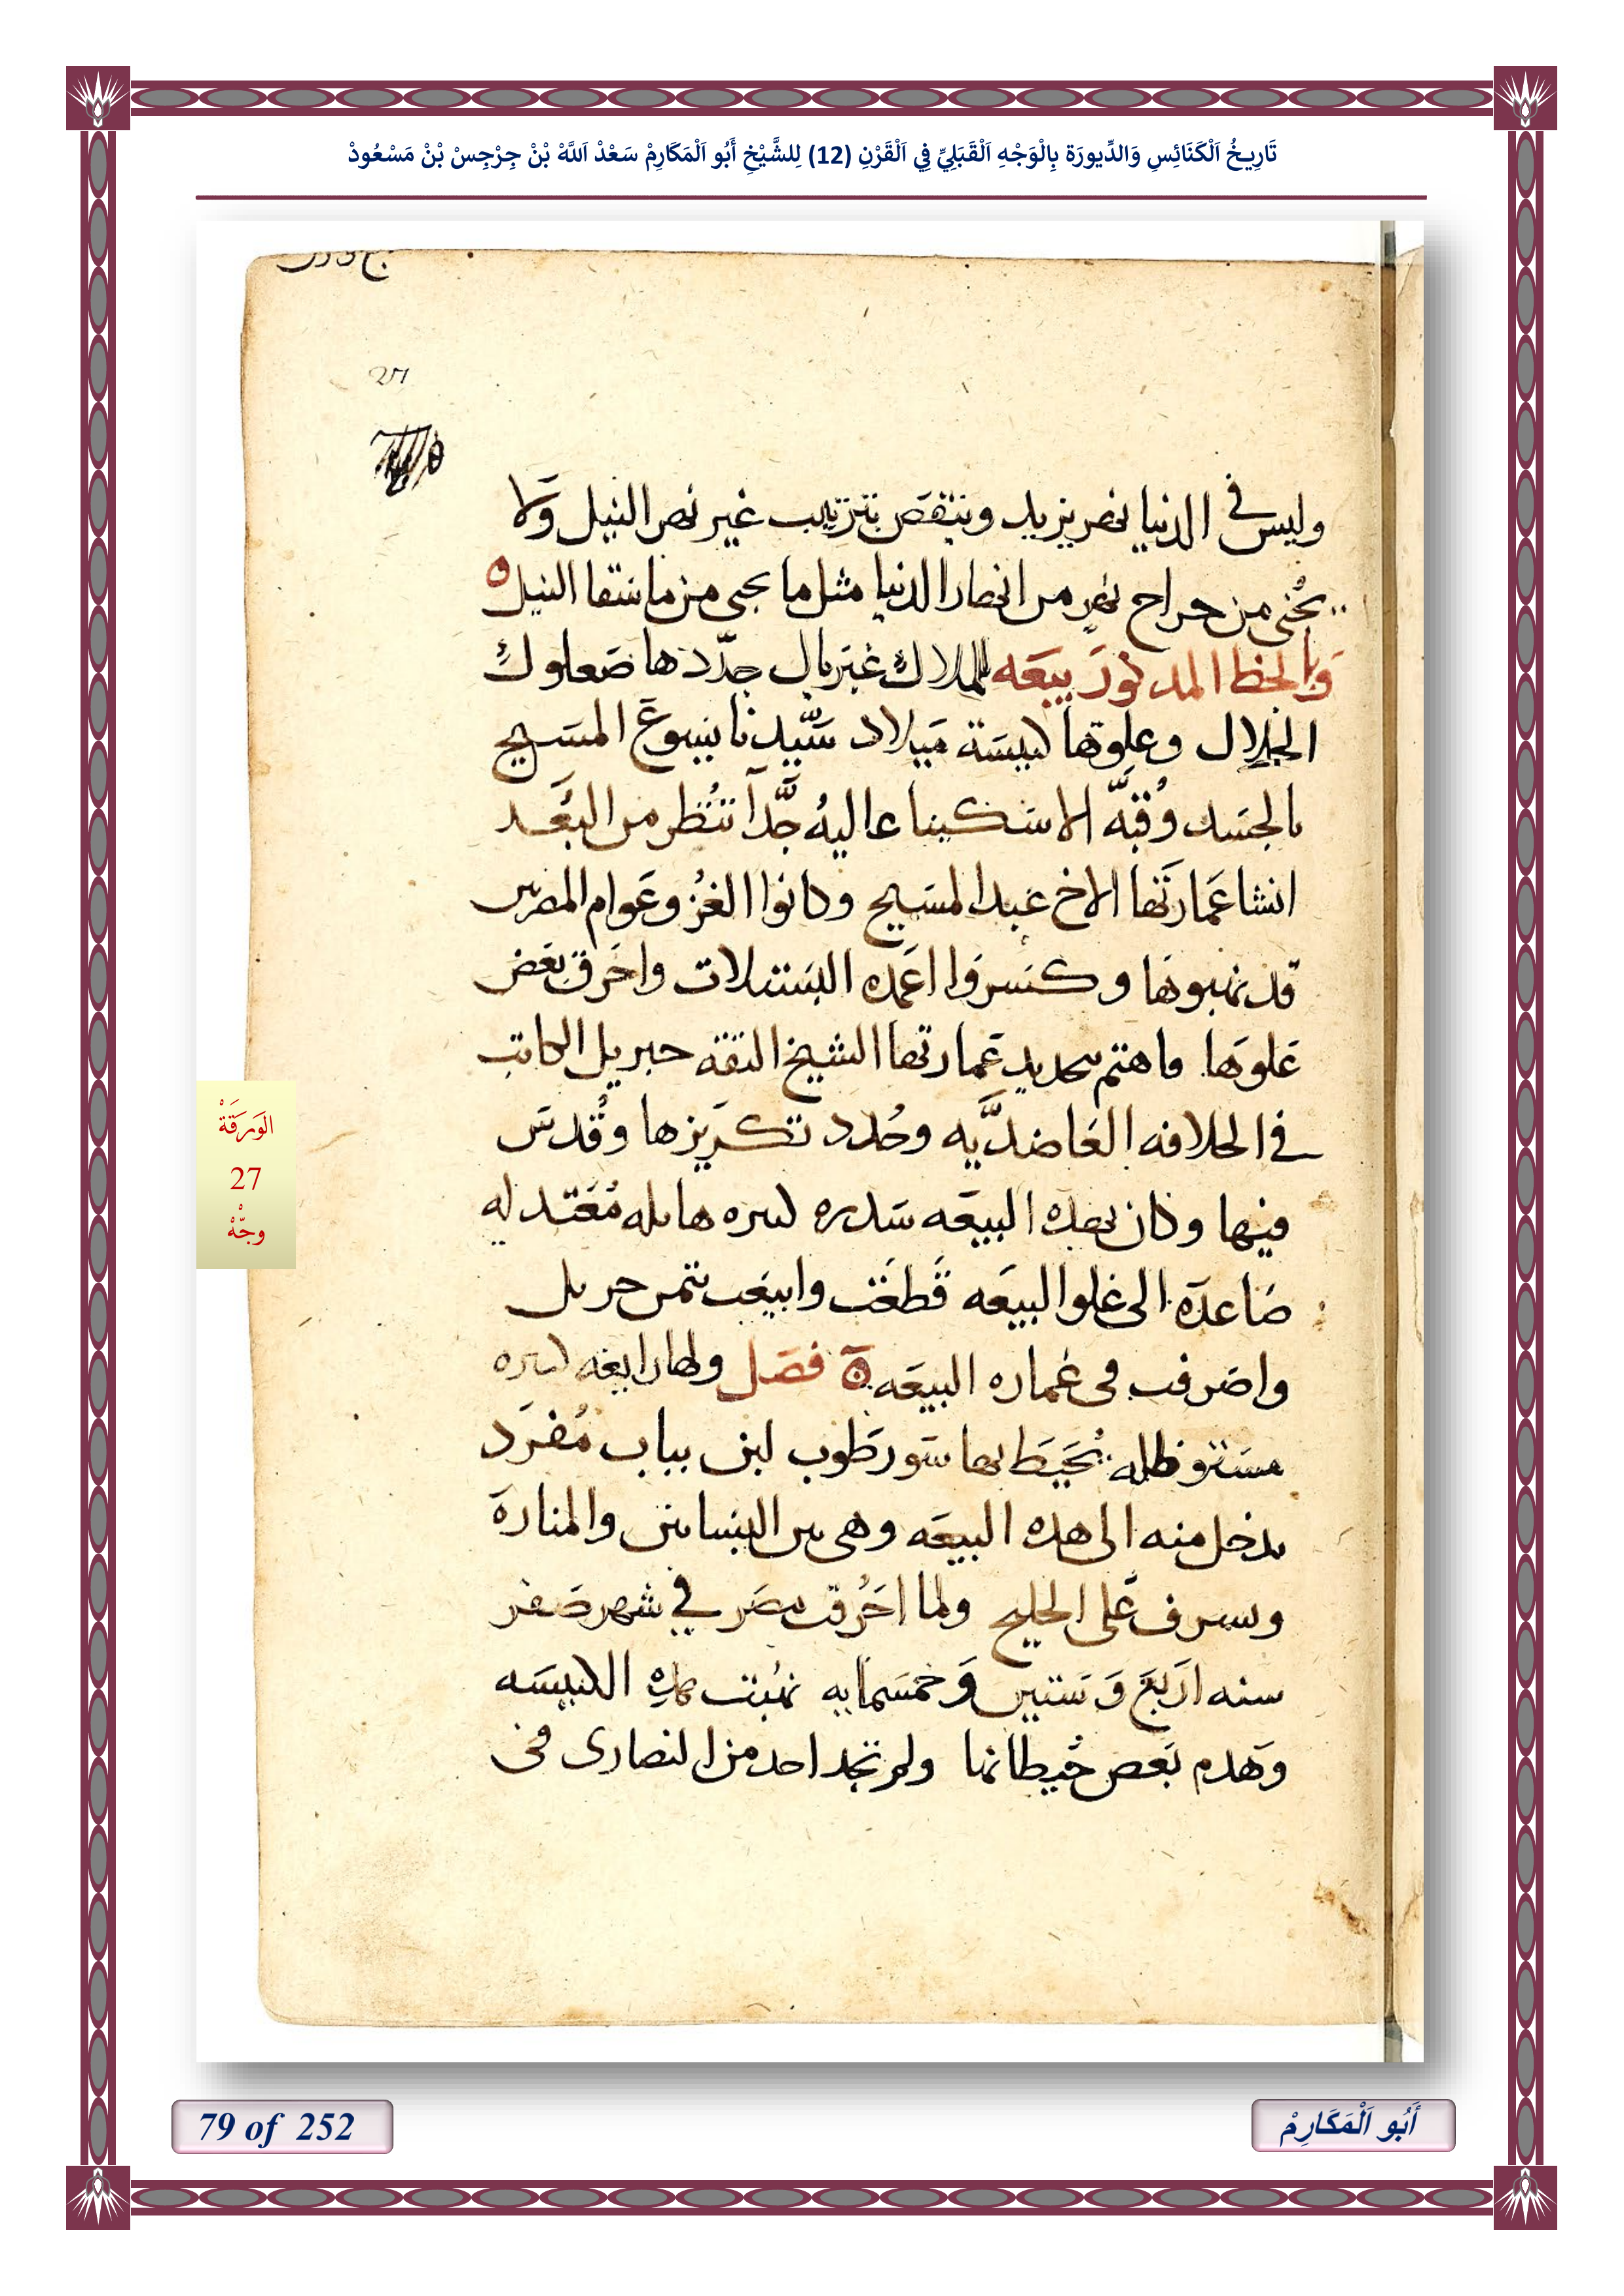 تَارِيخُ اَلْكَنَائِسِ وَالدِّيورَة بِالْوَجْهِ اَلْقَبَلِيِّ فِي اَلْقَرْنِ (12) لِلشَّيْخِ أَبُو اَلْمَكَارِمْ سَعْدْ اَللَّهْ بْنْ جِرْجِسْ بْنْ مَسْعُودْ
27
وليس في الدنيا نهر يزيد وينقص بترتيب غير نهر النيل ولا
يجبى من خراج نهر من انهار الدنيا مثل ما يجبى من ما سقا النيل
وبالخط المذكور بيعه للملاك غبريال جددها صعلوك
الجلال وعلوها كنيسة ميلاد سيدنا يسوع المسيح
بالجسد وقبه الاسكينا عاليه جدا تنظر من البعد
انشا عمارتها الاخ عبد المسيح وكانوا الغز وعوام المصريين
قد نهبوها وكسروا اعمده البستلات واحرق بعض
علوها فاهتم بتجديد عمارتها الشيخ الثقه جبريل الكاتب
في الخلافه العاضديه وجدد تكريزها وقدس
فيها وكان بهذه البيعه سدره كبيره هايله معتدله
صاعده الى علو البيعه قطعت وابيعت بثمن جزيل
واصرفت في عماره البيعه فصل ولها رابغه كبيره
مستوظله يحيط بها سور طوب لبن بباب مفرد
يدخل منه الى هذه البيعه وهى بين البساتين والمناره
وتشرف على الخليج ولما احرقت مصر في شهر صفر
سنه اربع وستين وخمسمايه نهبت هذه الكنيسه
وهدم بعض حيطانها ولم تجد احد من النصارى في
الوَرَقَةْ
27
وجْهْ
79 of 252
أَبُو اَلْمَكَارِمْ